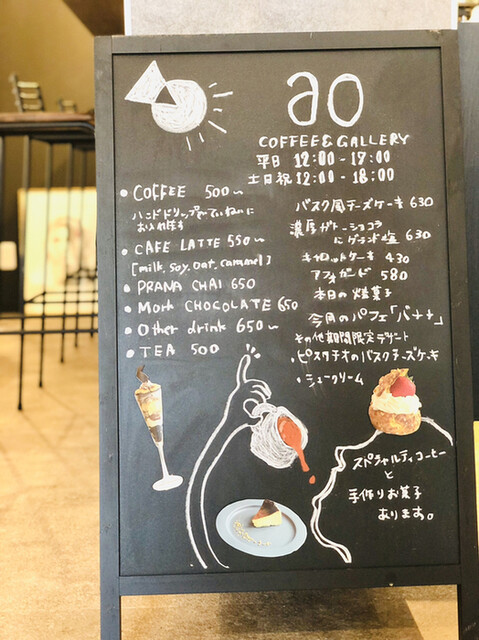 ao
COFFEE&GALLERY
平日 12:00-17:00
土日祝 12:00-18:00
• COFFEE 500~
ハンドドリップでていねいに
お入れします
• CAFE LATTE 550~
[milk, soy, oat, caramel]
• PRANA CHAI 650
• Mork CHOCOLATE 650
• Other drink 650~
• TEA 500
バスク風チーズケーキ 630
濃厚ガトーショコラ
にゲランド塩 630
キャロットケーキ 430
アフォガード 580
本日の焼菓子
今月のパフェ「バナナ」
その他期間限定デザート
・ピスタチオのバスクチーズケーキ
・シュークリーム
スペシャルティコーヒー
と
手作りお菓子
あります。